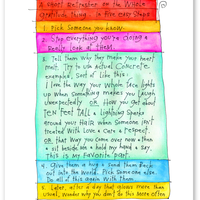 A Short Refresher on the Whole
Gratitude Thing in Five Easy Steps
1. Pick Someone you know.
2. Stop everything you're doing &
Really look at them.
3. Tell them why they make your heart
melt. Try to use actual Concrete
examples, sort of like this:
I love the way your whole face lights
up when something makes you laugh
unexpectedly OR How you get about
TEN feet TALL & Lightning Sparks
around your HAIR when Someone isn't
treated with Love & Care & respect
OR that way you come over now & then
& sit beside me & hold my hand & say,
This is my favorite part.
4. Give them a hug & send them back
out into the World. Pick Someone else.
Do it all this again with them.
5. Later, after a day that glows more than
usual, Wonder why you don't do this more often